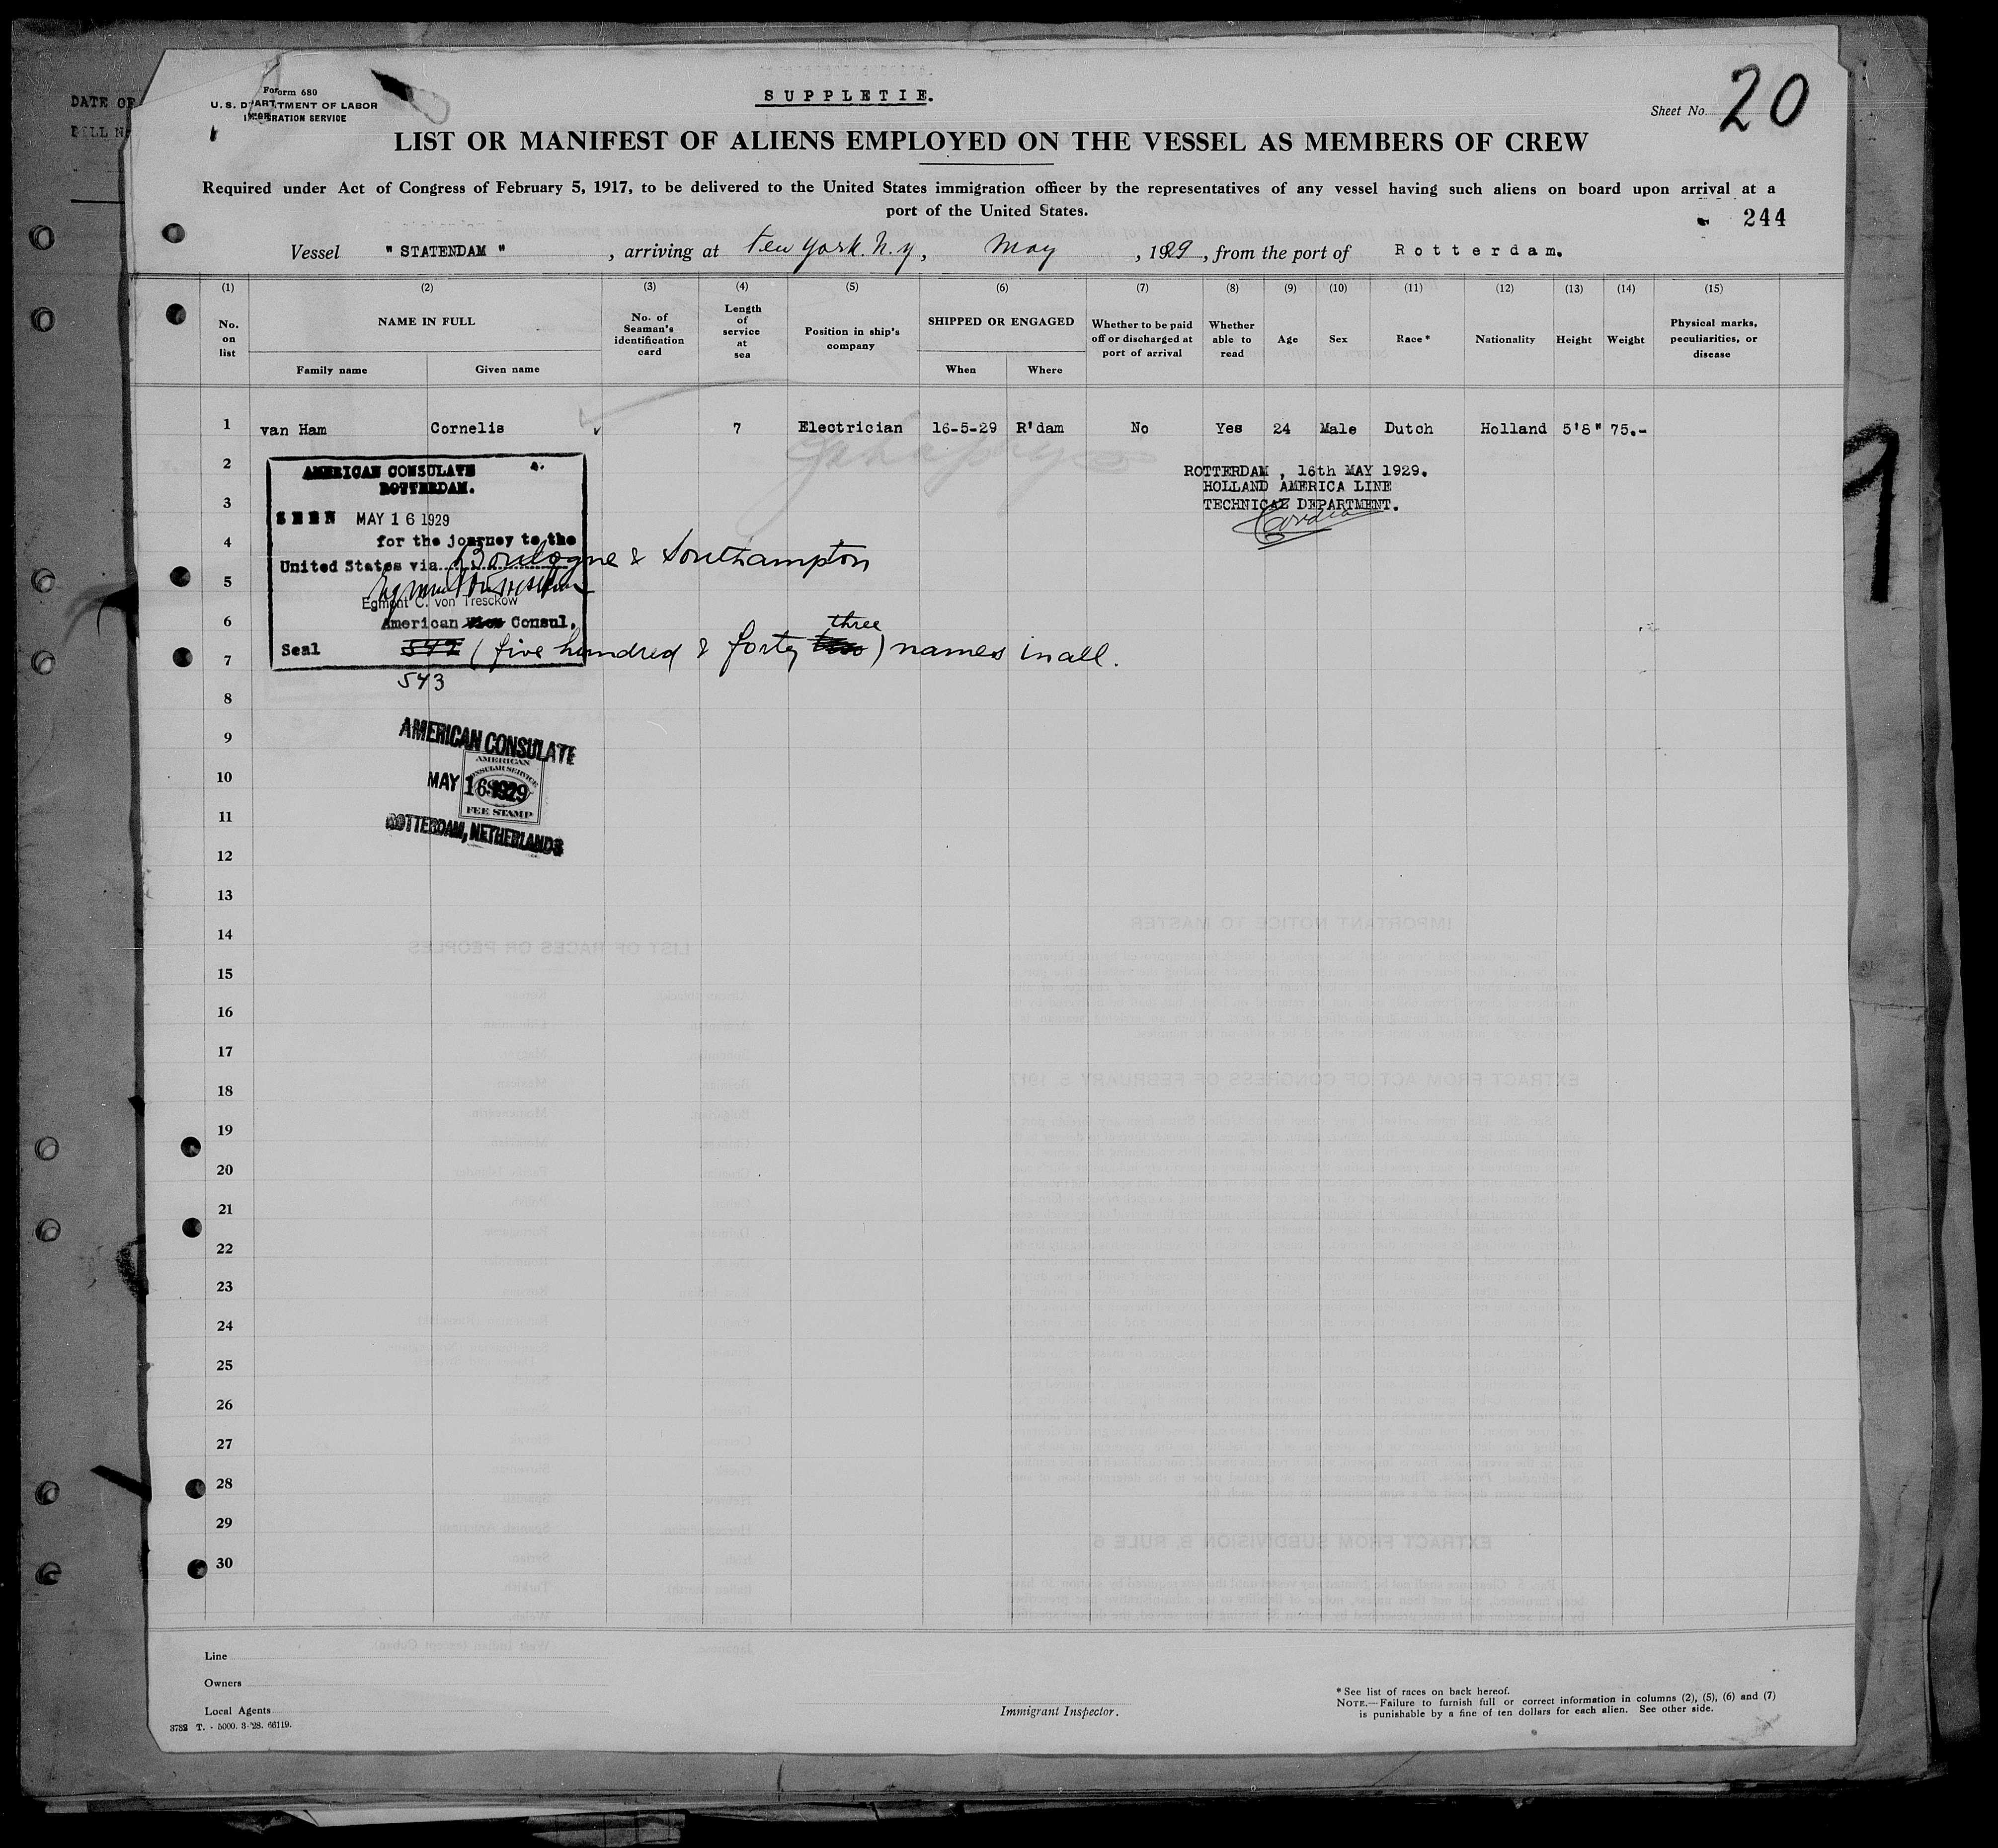 DATE OF
BILL N
Form 680
U. S. DEPARTMENT OF LABOR
IMMIGRATION SERVICE
SUPPLETIE.
Sheet No. 20
LIST OR MANIFEST OF ALIENS EMPLOYED ON THE VESSEL AS MEMBERS OF CREW
Required under Act of Congress of February 5, 1917, to be delivered to the United States immigration officer by the representatives of any vessel having such aliens on board upon arrival at a
port of the United States.
244
Vessel "STATENDAM", arriving at New York. N.Y, May, 1929, from the port of Rotterdam.
(1) (2) (3) (4) (5) (6) (7) (8) (9) (10) (11) (12) (13) (14) (15)
No. on list
NAME IN FULL
Family name Given name
No. of Seaman's identification card
Length of service at sea
Position in ship's company
SHIPPED OR ENGAGED
When Where
Whether to be paid off or discharged at port of arrival
Whether able to read
Age
Sex
Race*
Nationality
Height
Weight
Physical marks, peculiarities, or disease
1 van Ham Cornelis 7 Electrician 16-5-29 R'dam No Yes 24 Male Dutch Holland 5'8" 75.-
2
ROTTERDAM, 16th MAY 1929.
HOLLAND AMERICA LINE
3
TECHNICAL DEPARTMENT.
AMERICAN CONSULATE
ROTTERDAM.
SEEN MAY 16 1929
4
for the journey to the
United States via Boulogne & Southampton
5
Egmont C. von Tresckow
6
American Vice Consul.
three
Seal 542 (five hundred & forty two) names in all.
7
543
8
9
AMERICAN CONSULATE
AMERICAN
CONSULAR SERVICE
10
MAY 16 1929
FEE STAMP
11
ROTTERDAM, NETHERLANDS
12
13
14
15
16
17
18
19
20
21
22
23
24
25
26
27
28
29
30
Line
Owners
Local Agents
3732 T. - 5000. 3-'28. 66119.
Immigrant Inspector.
* See list of races on back hereof.
NOTE.—Failure to furnish full or correct information in columns (2), (5), (6) and (7)
is punishable by a fine of ten dollars for each alien. See other side.